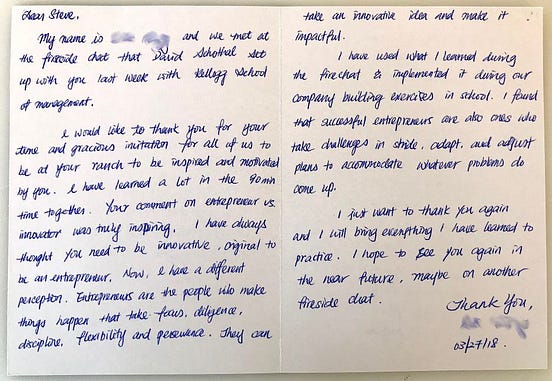 Dear Steve,
My name is and we met at
the fireside chat that David Schonthal set
up with you last week with Kellogg School
of management.
I would like to thank you for your
time and gracious invitation for all of us to
be at your ranch to be inspired and motivated
by you. I have learned a lot in the 90mn
time together. Your comment on entrepreneur vs.
innovator was truly inspiring. I have always
thought you need to be innovative, original to
be an entrepreneur. Now, I have a different
perception. Entrepreneurs are the people who make
things happen that take focus, diligence,
discipline, flexibility and perseverance. They can
take an innovative idea and make it
impactful.
I have used what I learned during
the firechat & implemented it during our
company building exercises in school. I found
that successful entrepreneurs are also ones who
take challenges in stride, adapt, and adjust
plans to accommodate whatever problems do
come up.
I just want to thank you again
and I will bring everything I have learned to
practice. I hope to see you again in
the near future, maybe on another
fireside chat.
Thank You,
03/27/18.